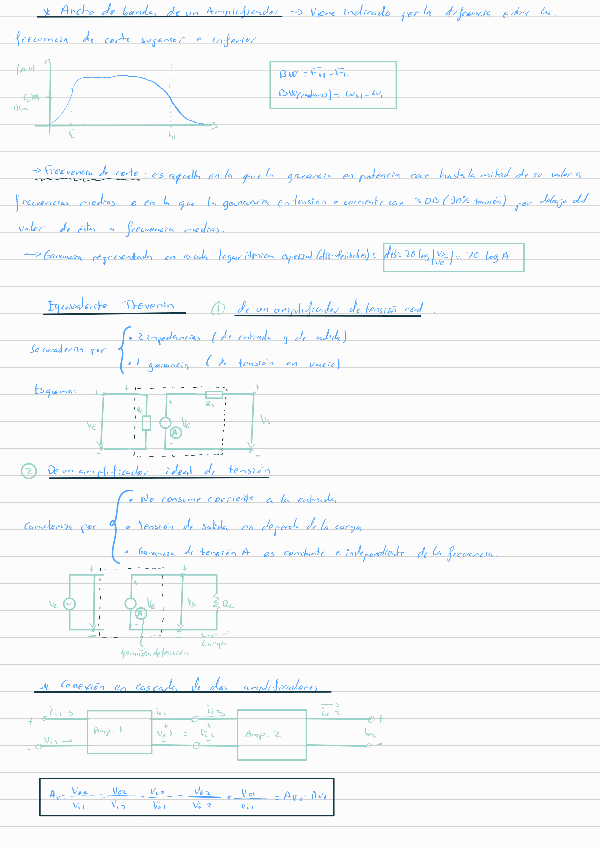 * Ancho de banda de un Amplificador → Viene indicado por la diferencia entre la
frecuencia de corte superior e inferior
BW = F_H - F_L
BW(rad/s) = ω_H - ω_L
→ Frecuencia de corte: es aquella en la que la ganancia en potencia cae hasta la mitad de su valor a
frecuencias medias o en la que la ganancia en tensión o corriente cae 3DB (30% tensión) por debajo del
valor de éstas a frecuencias medias.
→ Ganancia representada en escala logarítmica
dB = 20 log |Vs/Ve| = 20 log A
Equivalente Thevenin ① de un amplificador de tensión real.
Se caracteriza por
• 2 impedancias (de entrada y de salida)
• 1 ganancia (de tensión en vacío)
Esquema:
+ + +
V_E R_S V_E V_S
A
- - -
② De un amplificador ideal de tensión
Caracteriza por
• No consume corriente a la entrada
• Tensión de salida no depende de la carga
• Ganancia de tensión A es constante e independiente de la frecuencia.
+ + +
V_E V_E V_S R_L
A
- - -
Carga
ganancia de tensión
* Conexión en cascada de dos amplificadores
+ Amp. 1 Amp. 2 +
- -
A_v = V_o2/V_i1 = V_o2/V_i2 · V_i2/V_i1 = V_o2/V_i2 · V_o1/V_i1 = A_v1 · A_v2